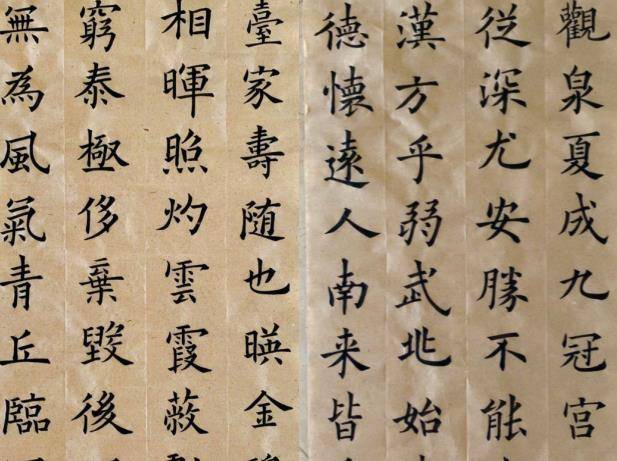 觀泉夏成九冠宮
從深尤安勝不能
漢方乎弱武北始
德懷遠人南来皆
臺家壽随也暎金
相暉照灼雲霞蔽
窮泰極侈棄毀後
無為風氣青丘臨